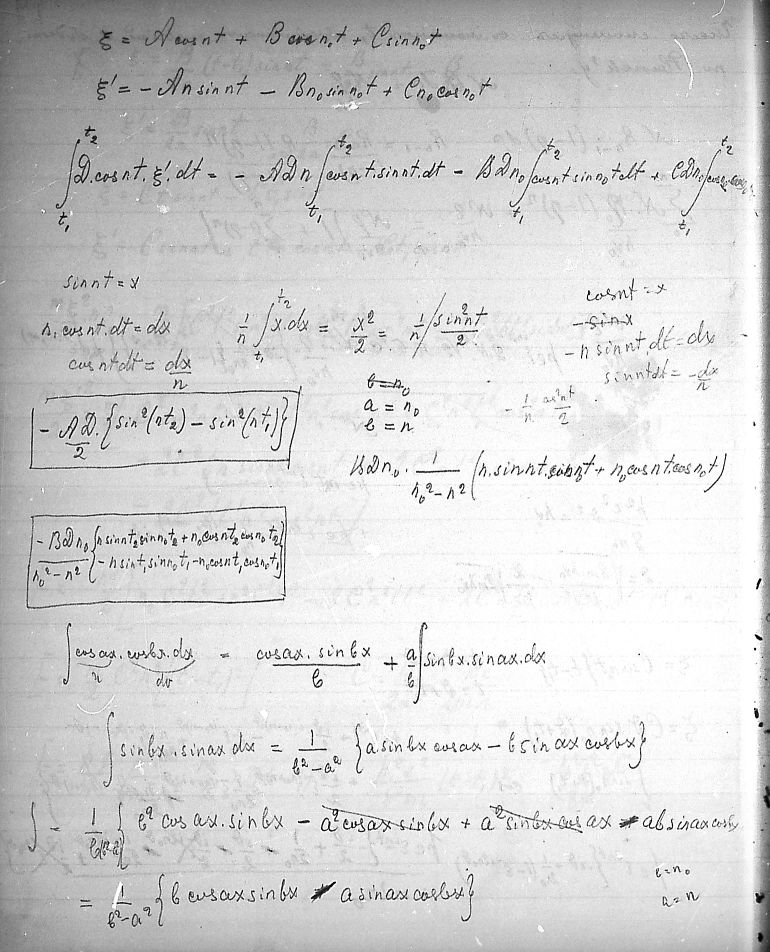 ξ = A cos nt + B cos n₀t + C sin n₀t
ξ' = − An sin nt − Bn₀ sin n₀t + Cn₀ cos n₀t
∫_{t₁}^{t₂} D.cos nt. ξ'. dt = − ADn ∫_{t₁}^{t₂} cos nt. sin nt. dt − BDn₀ ∫_{t₁}^{t₂} cos nt sin n₀t dt + CDn₀ ∫_{t₁}^{t₂}
sin nt = x
n. cos nt. dt = dx
cos nt dt = dx/n
1/n ∫_{t₁}^{t₂} x.dx = x²/2 = 1/n / sin²nt/2
cos nt = x
− sin x
− n sin nt. dt = dx
sin nt dt = −dx/n
− 1/n cos²nt/2
− AD/2 . {sin²(nt₂) − sin²(nt₁)}
b = n₀
a = n₀
b = n
BDn₀ . 1/(n₀² − n²) (n. sin nt. sin n₀t + n₀ cos nt. cos n₀t)
− BDn₀/(n₀² − n²) {n sin nt₂ sin n₀t₂ + n₀ cos nt₂ cos n₀t₂
− n sin t₁ sin n₀t₁ − n₀ cos nt₁ cos n₀t₁}
∫ cos ax. cos bx. dx = cos ax. sin bx / b + a/b ∫ sin bx. sin ax. dx
u dv
∫ sin bx. sin ax dx = 1/(b² − a²) {a sin bx cos ax − b sin ax cos bx}
∫ = 1/b(b²−a²) { b² cos ax. sin bx − a² cos ax sin bx + a² sin bx cos ax − ab sin ax cos bx
= 1/(b² − a²) {b cos ax sin bx − a sin ax cos bx}
b = n₀
a = n